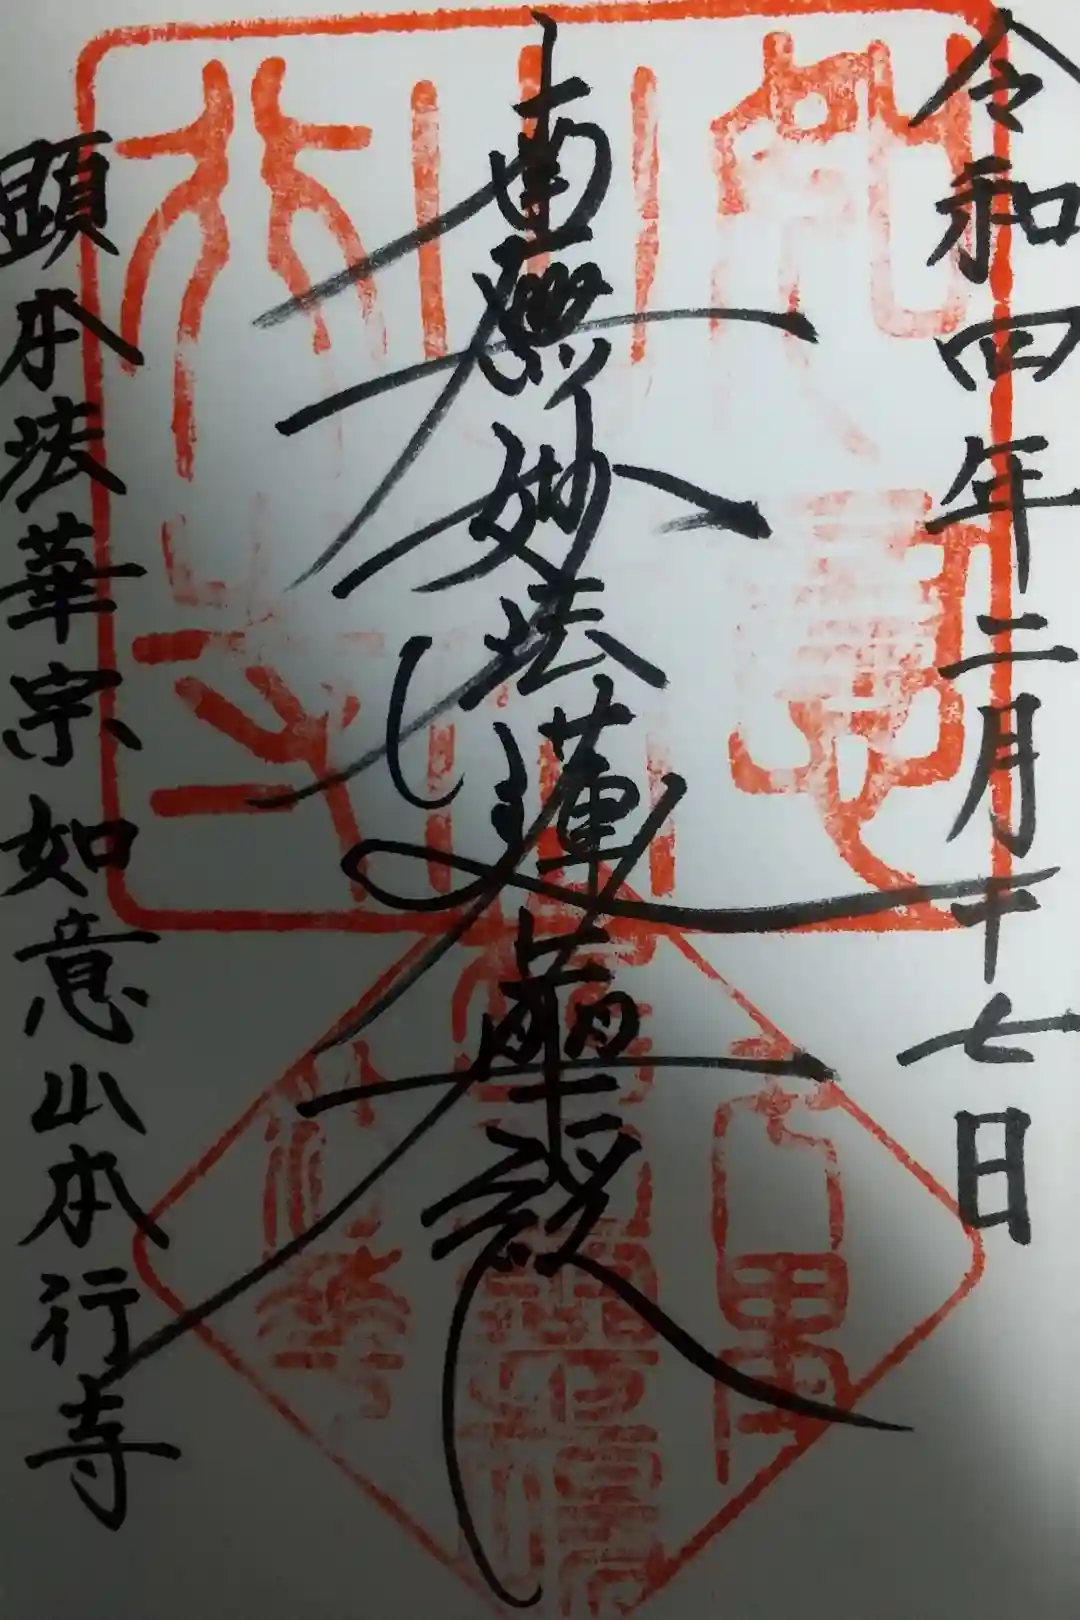 令和四年二月十七日
南無妙法蓮華経
顕本法華宗如意山本行寺